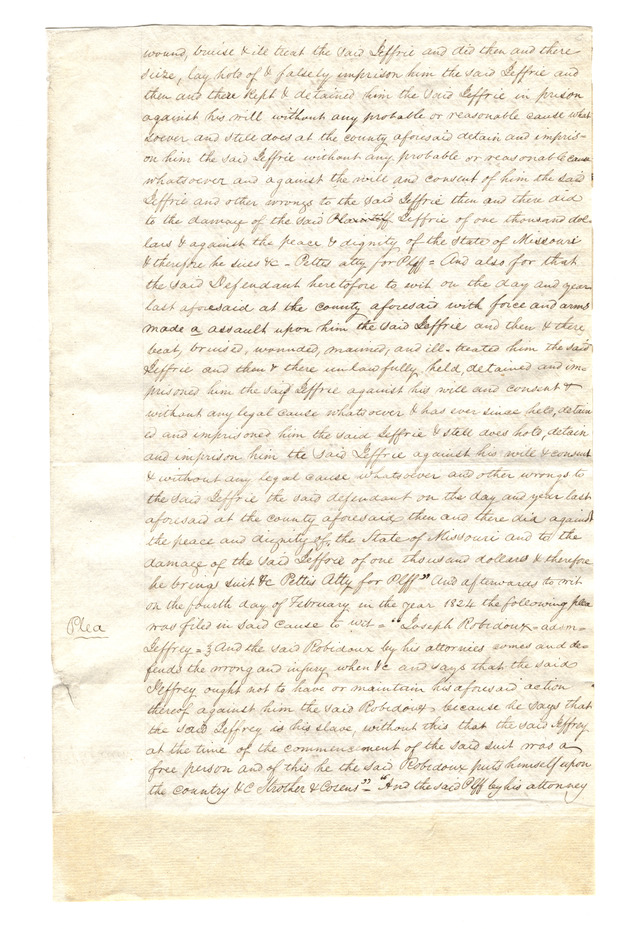 wound, bruise & ill treat the said Jeffrie and did then and there
seize, lay hold of & falsely imprison him the said Jeffrie and
then and there kept & detained him the said Jeffrie in prison
against his will without any probable or reasonable cause what
soever and still does at the county aforesaid detain and impris-
on him the said Jeffrie without any probable or reasonable cause
whatsoever and against the will and consent of him the said
Jeffrie and other wrongs to the said Jeffrie then and there did
to the damage of the said Plaintiff Jeffrie of one thousand dol-
lars & against the peace & dignity of the State of Missouri
& therefore he sues &c - Pettis atty for Plff = And also for that
the said Defendant heretofore to wit on the day and year
last aforesaid at the county aforesaid with force and arms
made a assault upon him the said Jeffrie and then & there
beat, bruised, wounded, maimed, and ill-treated him the said
Jeffrie and then & there unlawfully held, detained and im-
prisoned him the said Jeffrie against his will and consent &
without any legal cause whatsoever & has ever since held, detain
ed and imprisoned him the said Jeffrie & still does hold, detain
and imprison him the said Jeffrie against his will & consent
& without any legal cause whatsoever and other wrongs to
the said Jeffrie the said defendant on the day and year last
aforesaid at the county aforesaid then and there did against
the peace and dignity of the State of Missouri and to the
damage of the said Jeffrie of one thousand dollars & therefore
he brings suit &c Pettis Atty for Plff" And afterwards to wit
on the fourth day of February in the year 1824 the following plea
Plea
was filed in said cause to wit = "Joseph Robidoux = adsm =
Jeffrey = } And the said Robidoux by his attornies comes and de-
fends the wrong and injury when &c and says that the said
Jeffrey ought not to have or maintain his aforesaid action
thereof against him the said Robidoux because he says that
the said Jeffrey is his slave, without this that the said Jeffrey
at the time of the commencement of the said suit was a
free person and of this he the said Robidoux puts himself upon
the country &C Strother & Cozens" - "And the said Plff by his attorney